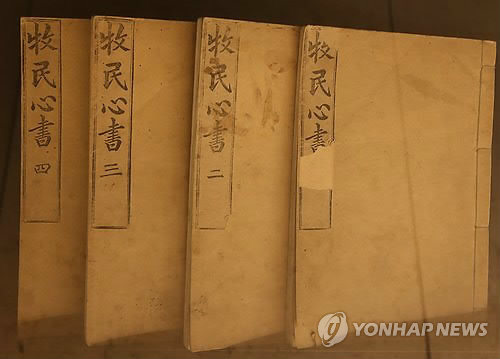 牧民心書 四
牧民心書 三
牧民心書 二
牧民心書
YONHAP NEWS